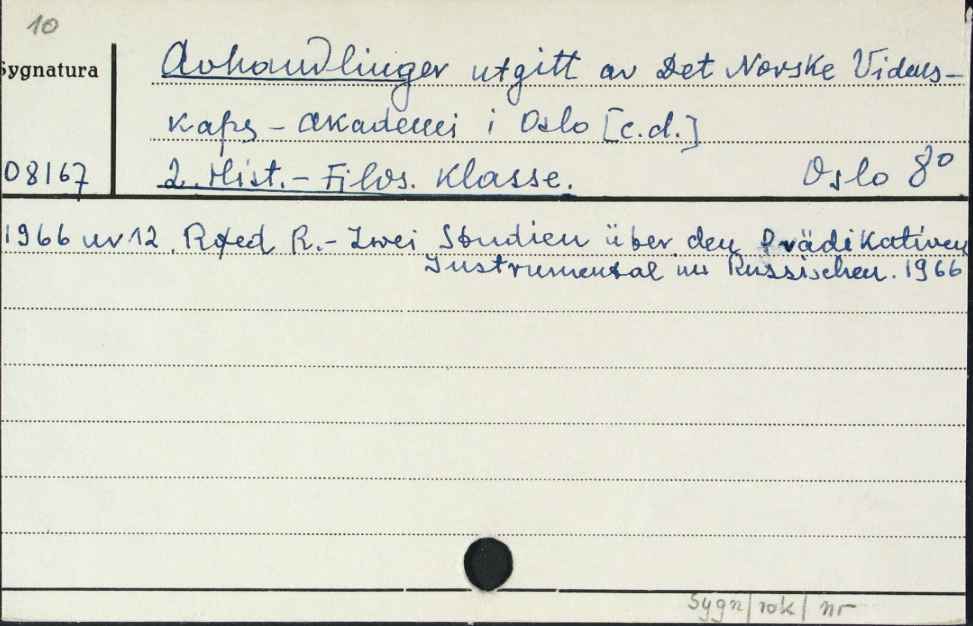 10
Sygnatura
Avhandlinger utgitt av Det Norske Videns-
kaps-akademi i Oslo [c.d.]
08167
2. Hist.-Filos. Klasse. Oslo 8°
1966 nr 12. Røed R.- Zwei Studien über den Prädikativen
Instrumental im Russischen. 1966
Sygn/rok/ nr